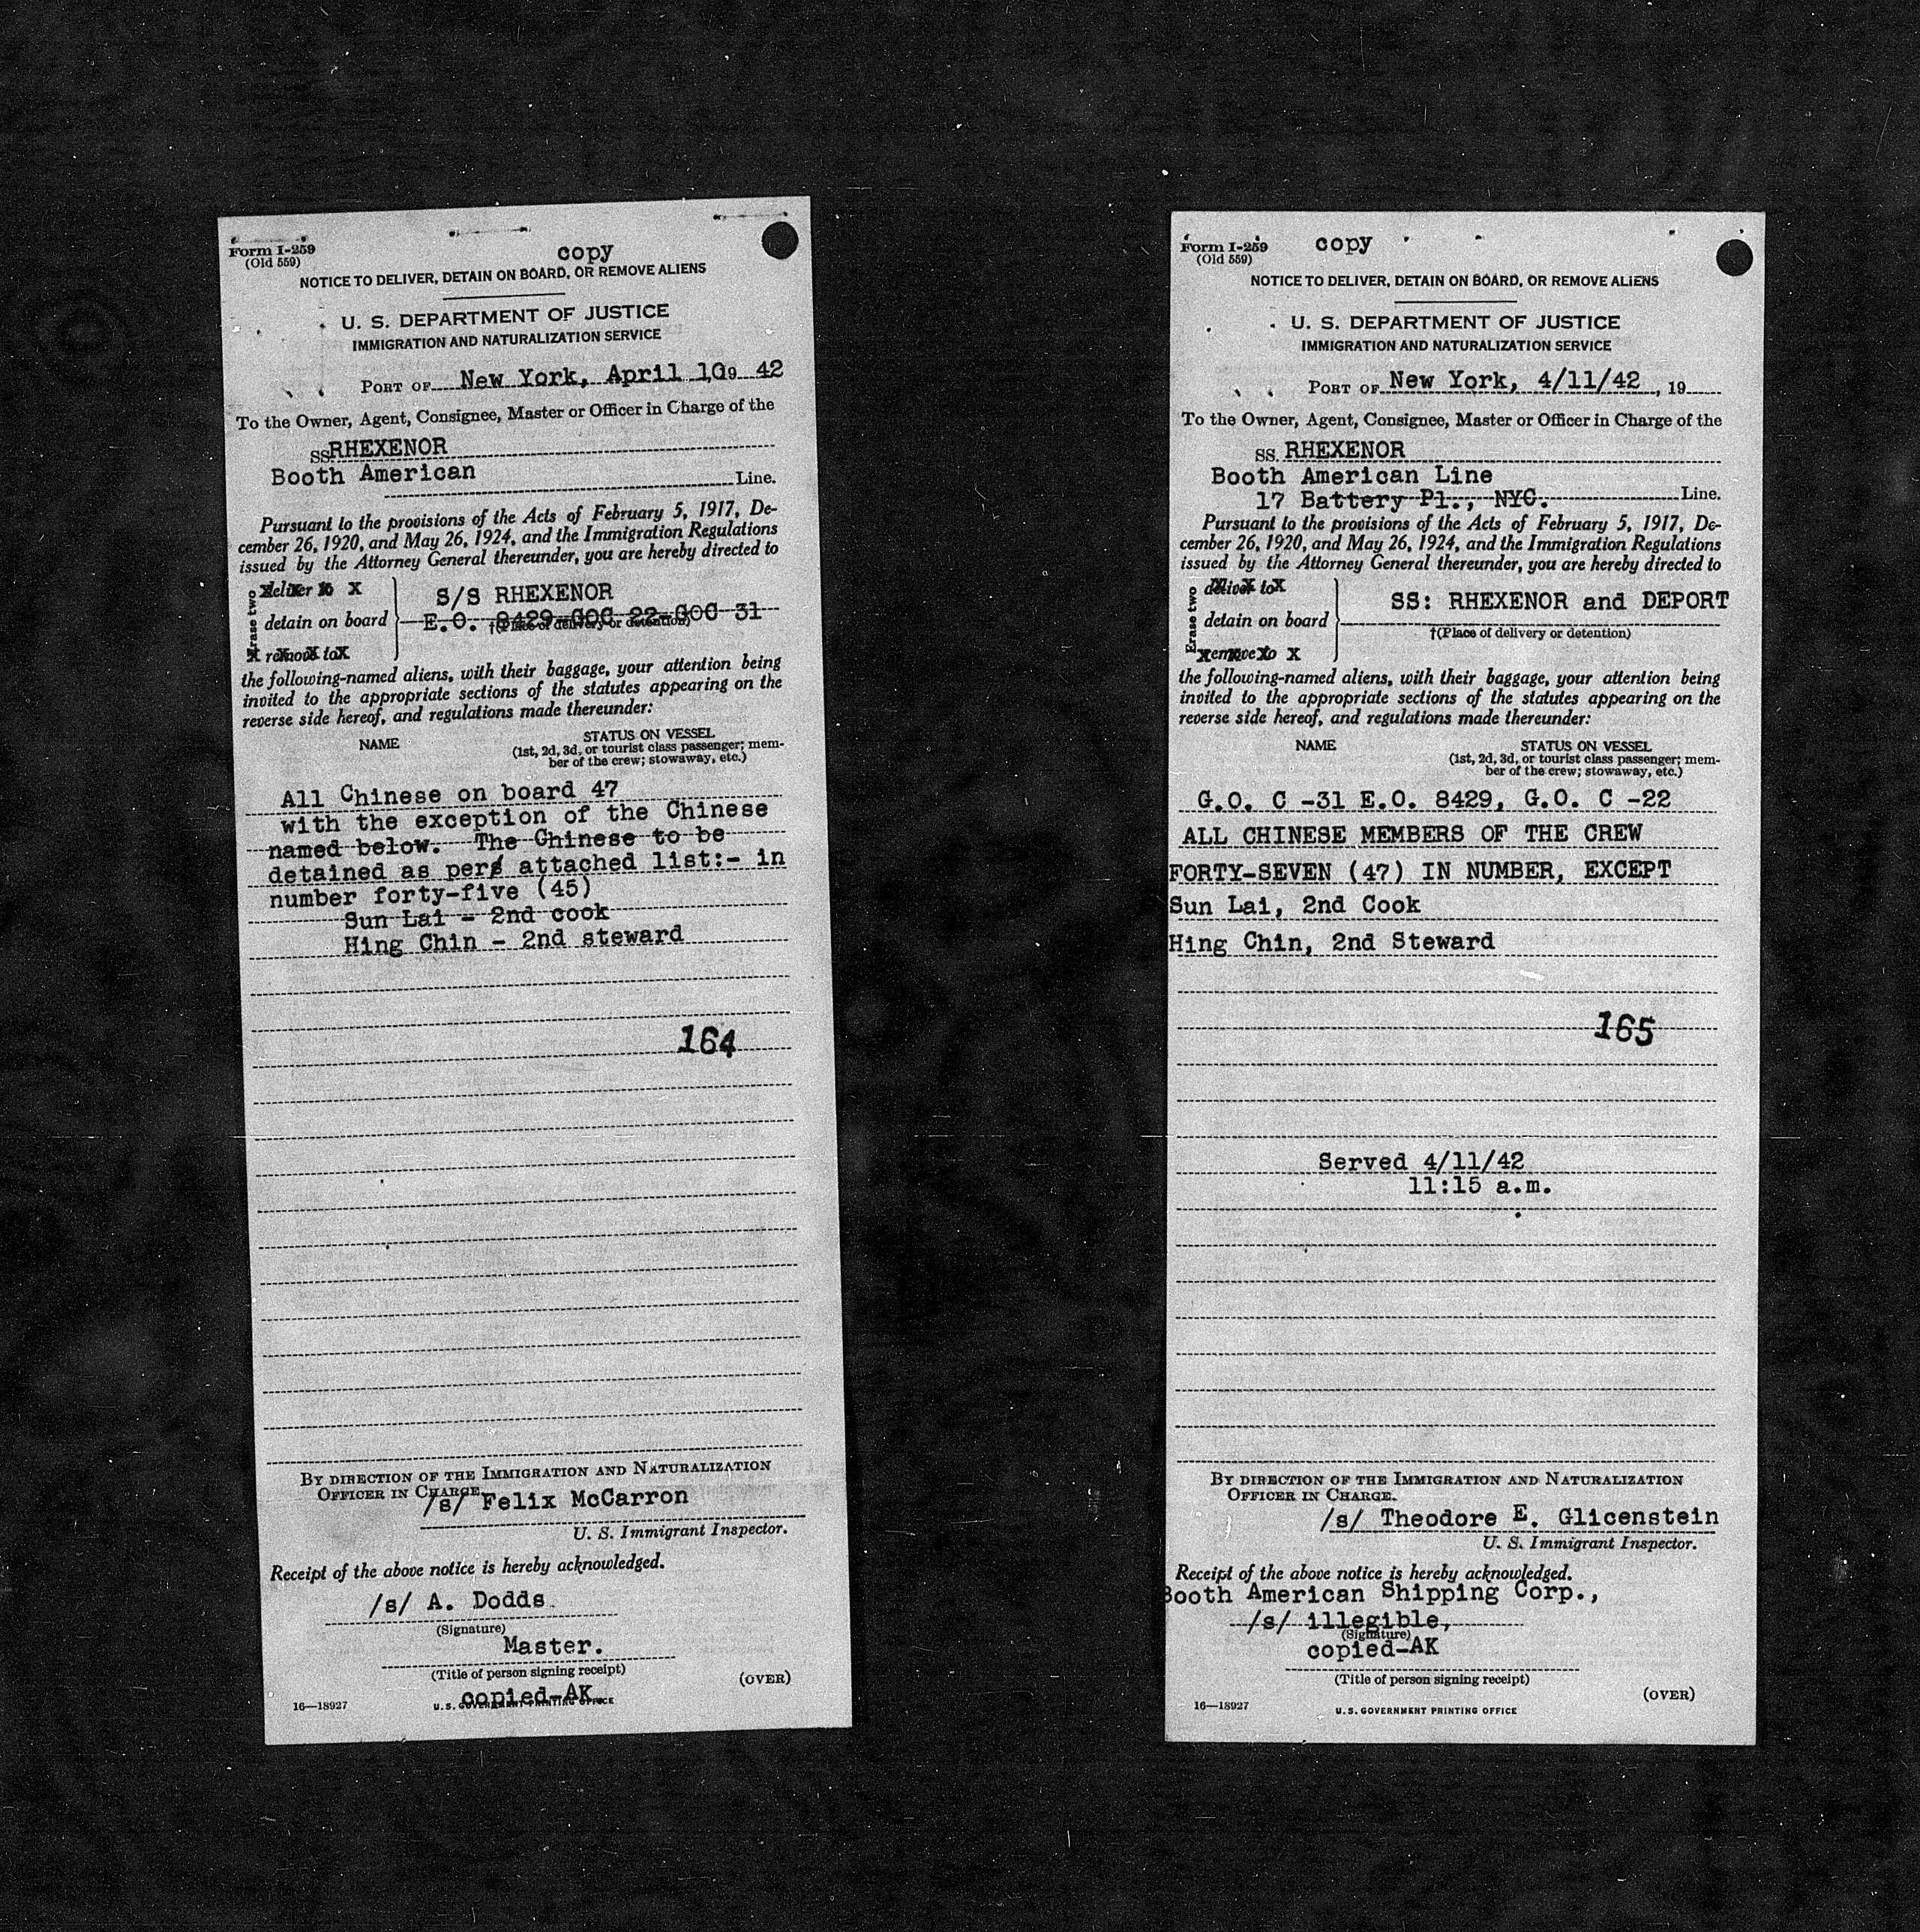 Form I-259
(Old 559)
copy
NOTICE TO DELIVER, DETAIN ON BOARD, OR REMOVE ALIENS
U. S. DEPARTMENT OF JUSTICE
IMMIGRATION AND NATURALIZATION SERVICE
PORT OF New York, April 10, 19 42
To the Owner, Agent, Consignee, Master or Officer in Charge of the
SS RHEXENOR
Booth American
Line.
Pursuant to the provisions of the Acts of February 5, 1917, De-
cember 26, 1920, and May 26, 1924, and the Immigration Regulations
issued by the Attorney General thereunder, you are hereby directed to
Erase two
deliver to X
S/S RHEXENOR
detain on board
E.O. 8429-GOC 22-GOC 31
†(Place of delivery or detention)
X remove to X
the following-named aliens, with their baggage, your attention being
invited to the appropriate sections of the statutes appearing on the
reverse side hereof, and regulations made thereunder:
NAME
STATUS ON VESSEL
(1st, 2d, 3d, or tourist class passenger; mem-
ber of the crew; stowaway, etc.)
All Chinese on board 47
with the exception of the Chinese
named below. The Chinese to be
detained as per attached list:- in
number forty-five (45)
Sun Lai - 2nd cook
Hing Chin - 2nd steward
164
BY DIRECTION OF THE IMMIGRATION AND NATURALIZATION
OFFICER IN CHARGE.
/s/ Felix McCarron
U. S. Immigrant Inspector.
Receipt of the above notice is hereby acknowledged.
/s/ A. Dodds
(Signature)
Master.
(Title of person signing receipt)
(OVER)
copied-AK
16—18927
U.S. GOVERNMENT PRINTING OFFICE
Form I-259
(Old 559)
copy
NOTICE TO DELIVER, DETAIN ON BOARD, OR REMOVE ALIENS
U. S. DEPARTMENT OF JUSTICE
IMMIGRATION AND NATURALIZATION SERVICE
PORT OF New York, 4/11/42, 19
To the Owner, Agent, Consignee, Master or Officer in Charge of the
SS. RHEXENOR
Booth American Line
17 Battery Pl., NYC. Line.
Pursuant to the provisions of the Acts of February 5, 1917, De-
cember 26, 1920, and May 26, 1924, and the Immigration Regulations
issued by the Attorney General thereunder, you are hereby directed to
Erase two
deliver to X
SS: RHEXENOR and DEPORT
detain on board
†(Place of delivery or detention)
remove to X
the following-named aliens, with their baggage, your attention being
invited to the appropriate sections of the statutes appearing on the
reverse side hereof, and regulations made thereunder:
NAME
STATUS ON VESSEL
(1st, 2d, 3d, or tourist class passenger; mem-
ber of the crew; stowaway, etc.)
G.O. C -31 E.O. 8429, G.O. C -22
ALL CHINESE MEMBERS OF THE CREW
FORTY-SEVEN (47) IN NUMBER, EXCEPT
Sun Lai, 2nd Cook
Hing Chin, 2nd Steward
165
Served 4/11/42
11:15 a.m.
BY DIRECTION OF THE IMMIGRATION AND NATURALIZATION
OFFICER IN CHARGE.
/s/ Theodore E. Glicenstein
U. S. Immigrant Inspector.
Receipt of the above notice is hereby acknowledged.
Booth American Shipping Corp.,
/s/ illegible,
(Signature)
copied-AK
(Title of person signing receipt)
(OVER)
16—18927
U.S. GOVERNMENT PRINTING OFFICE